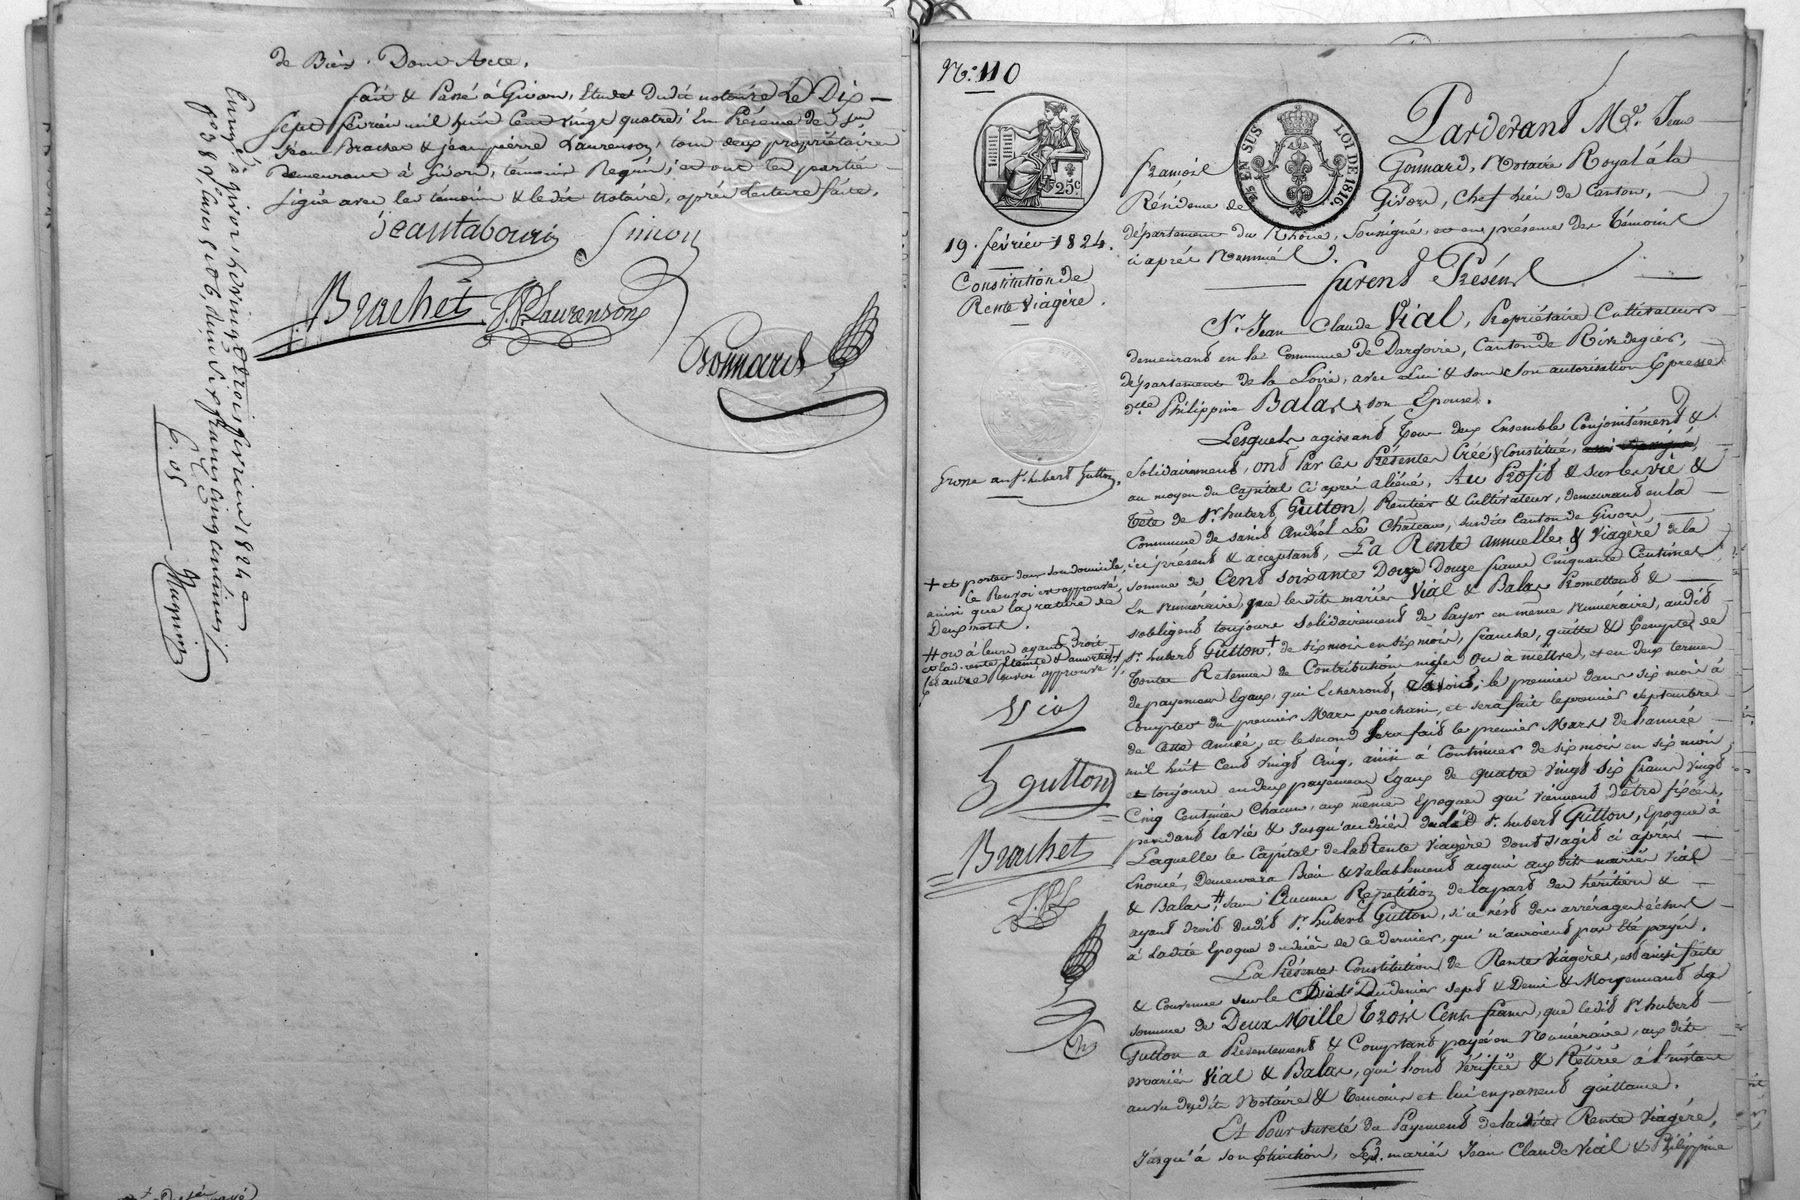 de Biens. Dont Acte.
fait & Passé à Givors, Etude dudit notaire Le Dix
Sept février mil huit cent vingt quatre; En Présence de Srs
Jean Brachet & jean pierre Laurenson, tous deux propriétaires
Demeurant à Givors, témoins Requis; et ont les parties
signé avec les témoins & ledit Notaire, après lecture faite.
jeantabourin Simon
Brachet J.P. Laurenson
Gonnard
Enregé à givors le vingt trois février 1824
dix francs cinquante centimes
Magnin
N.o 110
25c
25c EN SUS LOI DE 1816.
19. février 1824.
Constitution de
Rente Viagère.
Grosse au Sr. hubert Gutton.
+ et porteur dans son domicile
Ce Renvoi est approuvé
ainsi que la rature de
Deux mots.
# ou à leurs ayant Droit
et lad. rente Eteinte & amortie
cet autre Renvoi approuvé
Vial
h gutton
Brachet
J.P.L
Pardevant Me. Jean
francois Gonnard, Notaire Royal à la
Résidence de Givors, Chef lieu de Canton,
département du Rhône, Soussigné, et en présence des Témoins
ci après Nommés.
furent Présens
Sr. Jean Claude Vial, Propriétaire Cultivateur
demeurant en la Commune de Dargoire, Canton de Rivedegier,
département de la Loire, avec Lui & sous Son autorisation Expresse
dlle Philippine Balas son Epouse.
Lesquels agissant Tous deux Ensemble Conjointement &
solidairement, ont Par ces Présentes Créé & Constitué,
au moyen du Capital Ci après aliéné, Au Profit & sur la vie &
Tête de Sr. hubert Gutton, Rentier & Cultivateur, demeurant en la
Commune de saint Andéol Le Château, susdit Canton de Givors,
ici présent & acceptant, La Rente annuelle & Viagère de la
somme de Cent soixante Douze francs Cinquante Centimes
En Numéraire, que lesdits mariés Vial & Balas Promettent &
s'obligent toujours solidairement de Payer en même Numéraire, audit
Sr. hubert Gutton + de six mois en six mois, franche, quitte & Exempte de
toutes Retenues de Contributions mises ou à mettre, et en deux termes
de payemens Egaux, qui Echerront, Savoir, le premier dans six mois à
Compter du premier Mars prochain, et sera fait le premier septembre
de cette année, et le second sera fait le premier Mars de l'année
mil huit cent vingt Cinq, ainsi à Continuer de six mois en six mois
et toujours en deux payemens Egaux de quatre vingt six francs vingt
Cinq Centimes Chacun, aux mêmes époques qui viennent d'être fixées,
pendant la vie & Jusqu'au décès dudit Sr. hubert Gutton, Epoque à
Laquelle le Capital de la Rente viagère dont s'agit ci après
Enoncé, Demeurera Bien & valablement acquis auxdits mariés Vial
& Balas # sans Aucune Répétition de la part des héritiers &
ayant droit dudit Sr. hubert Gutton, si ce n'est des arrérages échus
à ladite Epoque du décès de ce dernier, qui n'auroient pas été payés.
La Présente Constitution de Rente Viagère, est ainsi faite
& Convenue sur le Pied Du denier sept & Demi & Moyennant La
somme de Deux Mille Trois Cents francs, que ledit Sr. hubert
Gutton a Présentement & Comptant payée en Numéraire, aux dits
mariés Vial & Balas, qui l'ont Vérifiée & Rétirée à l'instant
au vu dudit Notaire & Témoins et lui en passent quittance.
Et Pour sureté du Payement de ladite Rente Viagère,
Jusqu'à son Extinction, Lesd. mariés Jean Claude Vial & Philippine